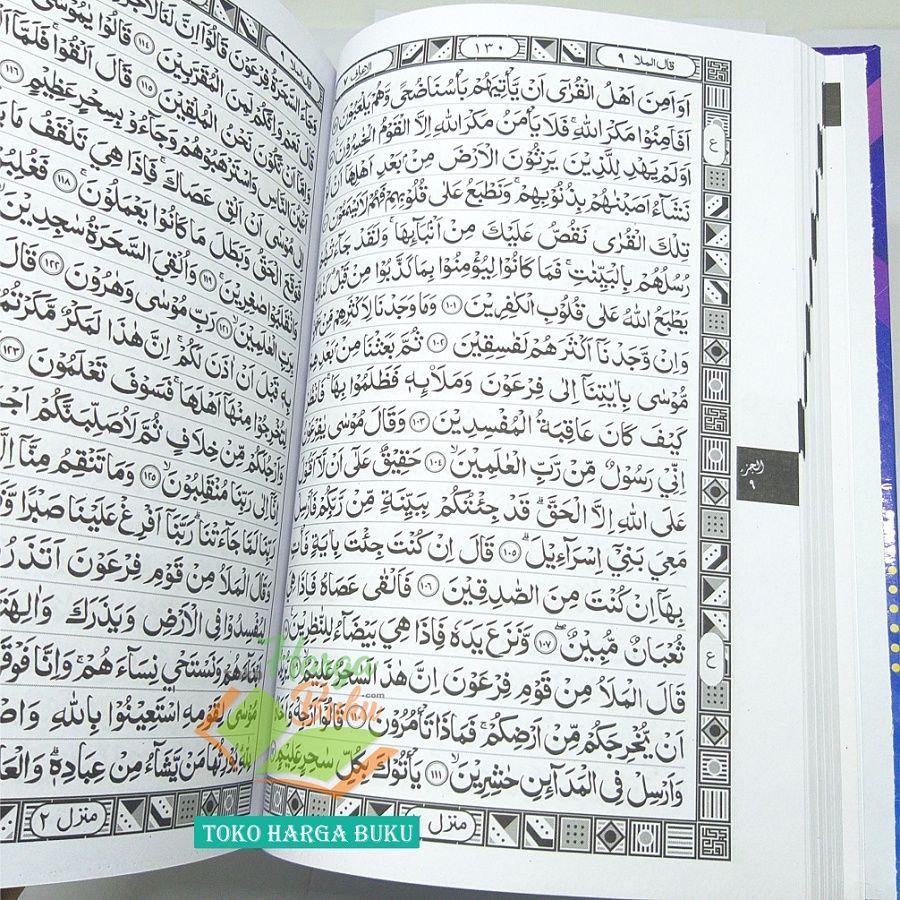 قال الملا ٩
١٣٠
الاعراف ٧
اَوَاَمِنَ اَهْلُ الْقُرٰٓى اَنْ يَّأْتِيَهُمْ بَأْسُنَا ضُحًى وَّهُمْ يَلْعَبُوْنَ
اَفَاَمِنُوْا مَكْرَ اللّٰهِ ۚ فَلَا يَأْمَنُ مَكْرَ اللّٰهِ اِلَّا الْقَوْمُ الْخٰسِرُوْنَ
اَوَلَمْ يَهْدِ لِلَّذِيْنَ يَرِثُوْنَ الْاَرْضَ مِنْۢ بَعْدِ اَهْلِهَآ اَنْ
نَشَآءُ اَصَبْنٰهُمْ بِذُنُوْبِهِمْ ۚ وَنَطْبَعُ عَلٰى قُلُوْبِهِمْ فَهُمْ لَا يَسْمَعُوْنَ
تِلْكَ الْقُرٰى نَقُصُّ عَلَيْكَ مِنْ اَنْۢبَآئِهَا ۚ وَلَقَدْ جَآءَتْهُمْ
رُسُلُهُمْ بِالْبَيِّنٰتِ ۚ فَمَا كَانُوْا لِيُؤْمِنُوْا بِمَا كَذَّبُوْا مِنْ قَبْلُ
يَطْبَعُ اللّٰهُ عَلٰى قُلُوْبِ الْكٰفِرِيْنَ ١٠١ وَمَا وَجَدْنَا لِاَكْثَرِهِمْ مِّنْ
وَاِنْ وَّجَدْنَآ اَكْثَرَهُمْ لَفٰسِقِيْنَ ١٠٢ ثُمَّ بَعَثْنَا مِنْۢ بَعْدِهِمْ
مُّوْسٰى بِاٰيٰتِنَآ اِلٰى فِرْعَوْنَ وَمَلَا۟ئِهٖ فَظَلَمُوْا بِهَا ۚ فَانْظُرْ
كَيْفَ كَانَ عَاقِبَةُ الْمُفْسِدِيْنَ ١٠٣ وَقَالَ مُوْسٰى يٰفِرْعَوْنُ
اِنِّيْ رَسُوْلٌ مِّنْ رَّبِّ الْعٰلَمِيْنَ ۙ ١٠٤ حَقِيْقٌ عَلٰٓى اَنْ لَّآ اَقُوْلَ
عَلَى اللّٰهِ اِلَّا الْحَقَّ ۗ قَدْ جِئْتُكُمْ بِبَيِّنَةٍ مِّنْ رَّبِّكُمْ فَاَرْسِلْ
مَعِيَ بَنِيْٓ اِسْرَآءِيْلَ ۗ ١٠٥ قَالَ اِنْ كُنْتَ جِئْتَ بِاٰيَةٍ فَأْتِ
بِهَآ اِنْ كُنْتَ مِنَ الصّٰدِقِيْنَ ١٠٦ فَاَلْقٰى عَصَاهُ فَاِذَا هِيَ
ثُعْبَانٌ مُّبِيْنٌ ۖ ١٠٧ وَّنَزَعَ يَدَهٗ فَاِذَا هِيَ بَيْضَآءُ لِلنّٰظِرِيْنَ
قَالَ الْمَلَاُ مِنْ قَوْمِ فِرْعَوْنَ اِنَّ هٰذَا لَسٰحِرٌ عَلِيْمٌ
اَنْ يُّخْرِجَكُمْ مِّنْ اَرْضِكُمْ ۚ فَمَاذَا تَأْمُرُوْنَ قَالُوْٓا اَرْجِهْ وَاَخَاهُ
وَاَرْسِلْ فِى الْمَدَآئِنِ حٰشِرِيْنَ ۙ ١١١ يَأْتُوْكَ بِكُلِّ سٰحِرٍ عَلِيْمٍ
منزل
ع
ع
الجزء
٩
وَجَآءَ السَّحَرَةُ فِرْعَوْنَ قَالُوْٓا اِنَّ لَنَا لَاَجْرًا
قَالَ نَعَمْ وَاِنَّكُمْ لَمِنَ الْمُقَرَّبِيْنَ ١١٤ قَالُوْا يٰمُوْسٰٓى
وَاِمَّآ اَنْ نَّكُوْنَ نَحْنُ الْمُلْقِيْنَ ١١٥ قَالَ اَلْقُوْا ۚ فَلَمَّآ
اَعْيُنَ النَّاسِ وَاسْتَرْهَبُوْهُمْ وَجَآءُوْ بِسِحْرٍ عَظِيْمٍ ١١٦
اِلٰى مُوْسٰٓى اَنْ اَلْقِ عَصَاكَ ۚ فَاِذَا هِيَ تَلْقَفُ مَا
فَوَقَعَ الْحَقُّ وَبَطَلَ مَا كَانُوْا يَعْمَلُوْنَ ۚ ١١٨ فَغُلِبُوْا
وَانْقَلَبُوْا صٰغِرِيْنَ ۚ ١١٩ وَاُلْقِيَ السَّحَرَةُ سٰجِدِيْنَ
بِرَبِّ الْعٰلَمِيْنَ ۙ ١٢١ رَبِّ مُوْسٰى وَهٰرُوْنَ ١٢٢ قَالَ
بِهٖ قَبْلَ اَنْ اٰذَنَ لَكُمْ ۚ اِنَّ هٰذَا لَمَكْرٌ مَّكَرْتُمُوْهُ
لِتُخْرِجُوْا مِنْهَآ اَهْلَهَا ۚ فَسَوْفَ تَعْلَمُوْنَ ١٢٣
وَاَرْجُلَكُمْ مِّنْ خِلَافٍ ثُمَّ لَاُصَلِّبَنَّكُمْ اَجْمَعِيْنَ
اِنَّآ اِلٰى رَبِّنَا مُنْقَلِبُوْنَ ۙ ١٢٥ وَمَا تَنْقِمُ مِنَّآ اِلَّآ
رَبِّنَا لَمَّا جَآءَتْنَا ۗ رَبَّنَآ اَفْرِغْ عَلَيْنَا صَبْرًا
وَقَالَ الْمَلَاُ مِنْ قَوْمِ فِرْعَوْنَ اَتَذَرُ
لِيُفْسِدُوْا فِى الْاَرْضِ وَيَذَرَكَ وَاٰلِهَتَكَ
اَبْنَآءَهُمْ وَنَسْتَحْيٖ نِسَآءَهُمْ ۚ وَاِنَّا فَوْقَهُمْ
مُوْسٰى لِقَوْمِهِ اسْتَعِيْنُوْا بِاللّٰهِ وَاصْبِرُوْا
يُوْرِثُهَا مَنْ يَّشَآءُ مِنْ عِبَادِهٖ ۗ وَالْعَاقِبَةُ
منزل ٢
Harga
Buku
.com
TOKO HARGA BUKU